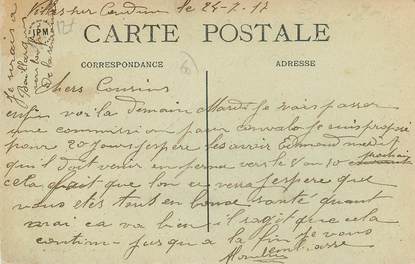 le 24-2-17
CARTE POSTALE
CORRESPONDANCE
ADRESSE
Chers Cousins
enfin voila demain Mardi je vais passer
une commission pour convalo je suis proposé
pour 20 jours j'espere les avoir Edmond me dit
qu'il doit venir en perme vers le 8 ou 10 prochain
cela fait que l'on se verra j'espere que
vous etes tous en bonne santé quant
moi ca va bien il s'agit que cela
continu jusqu a la fin je vous
embrasse